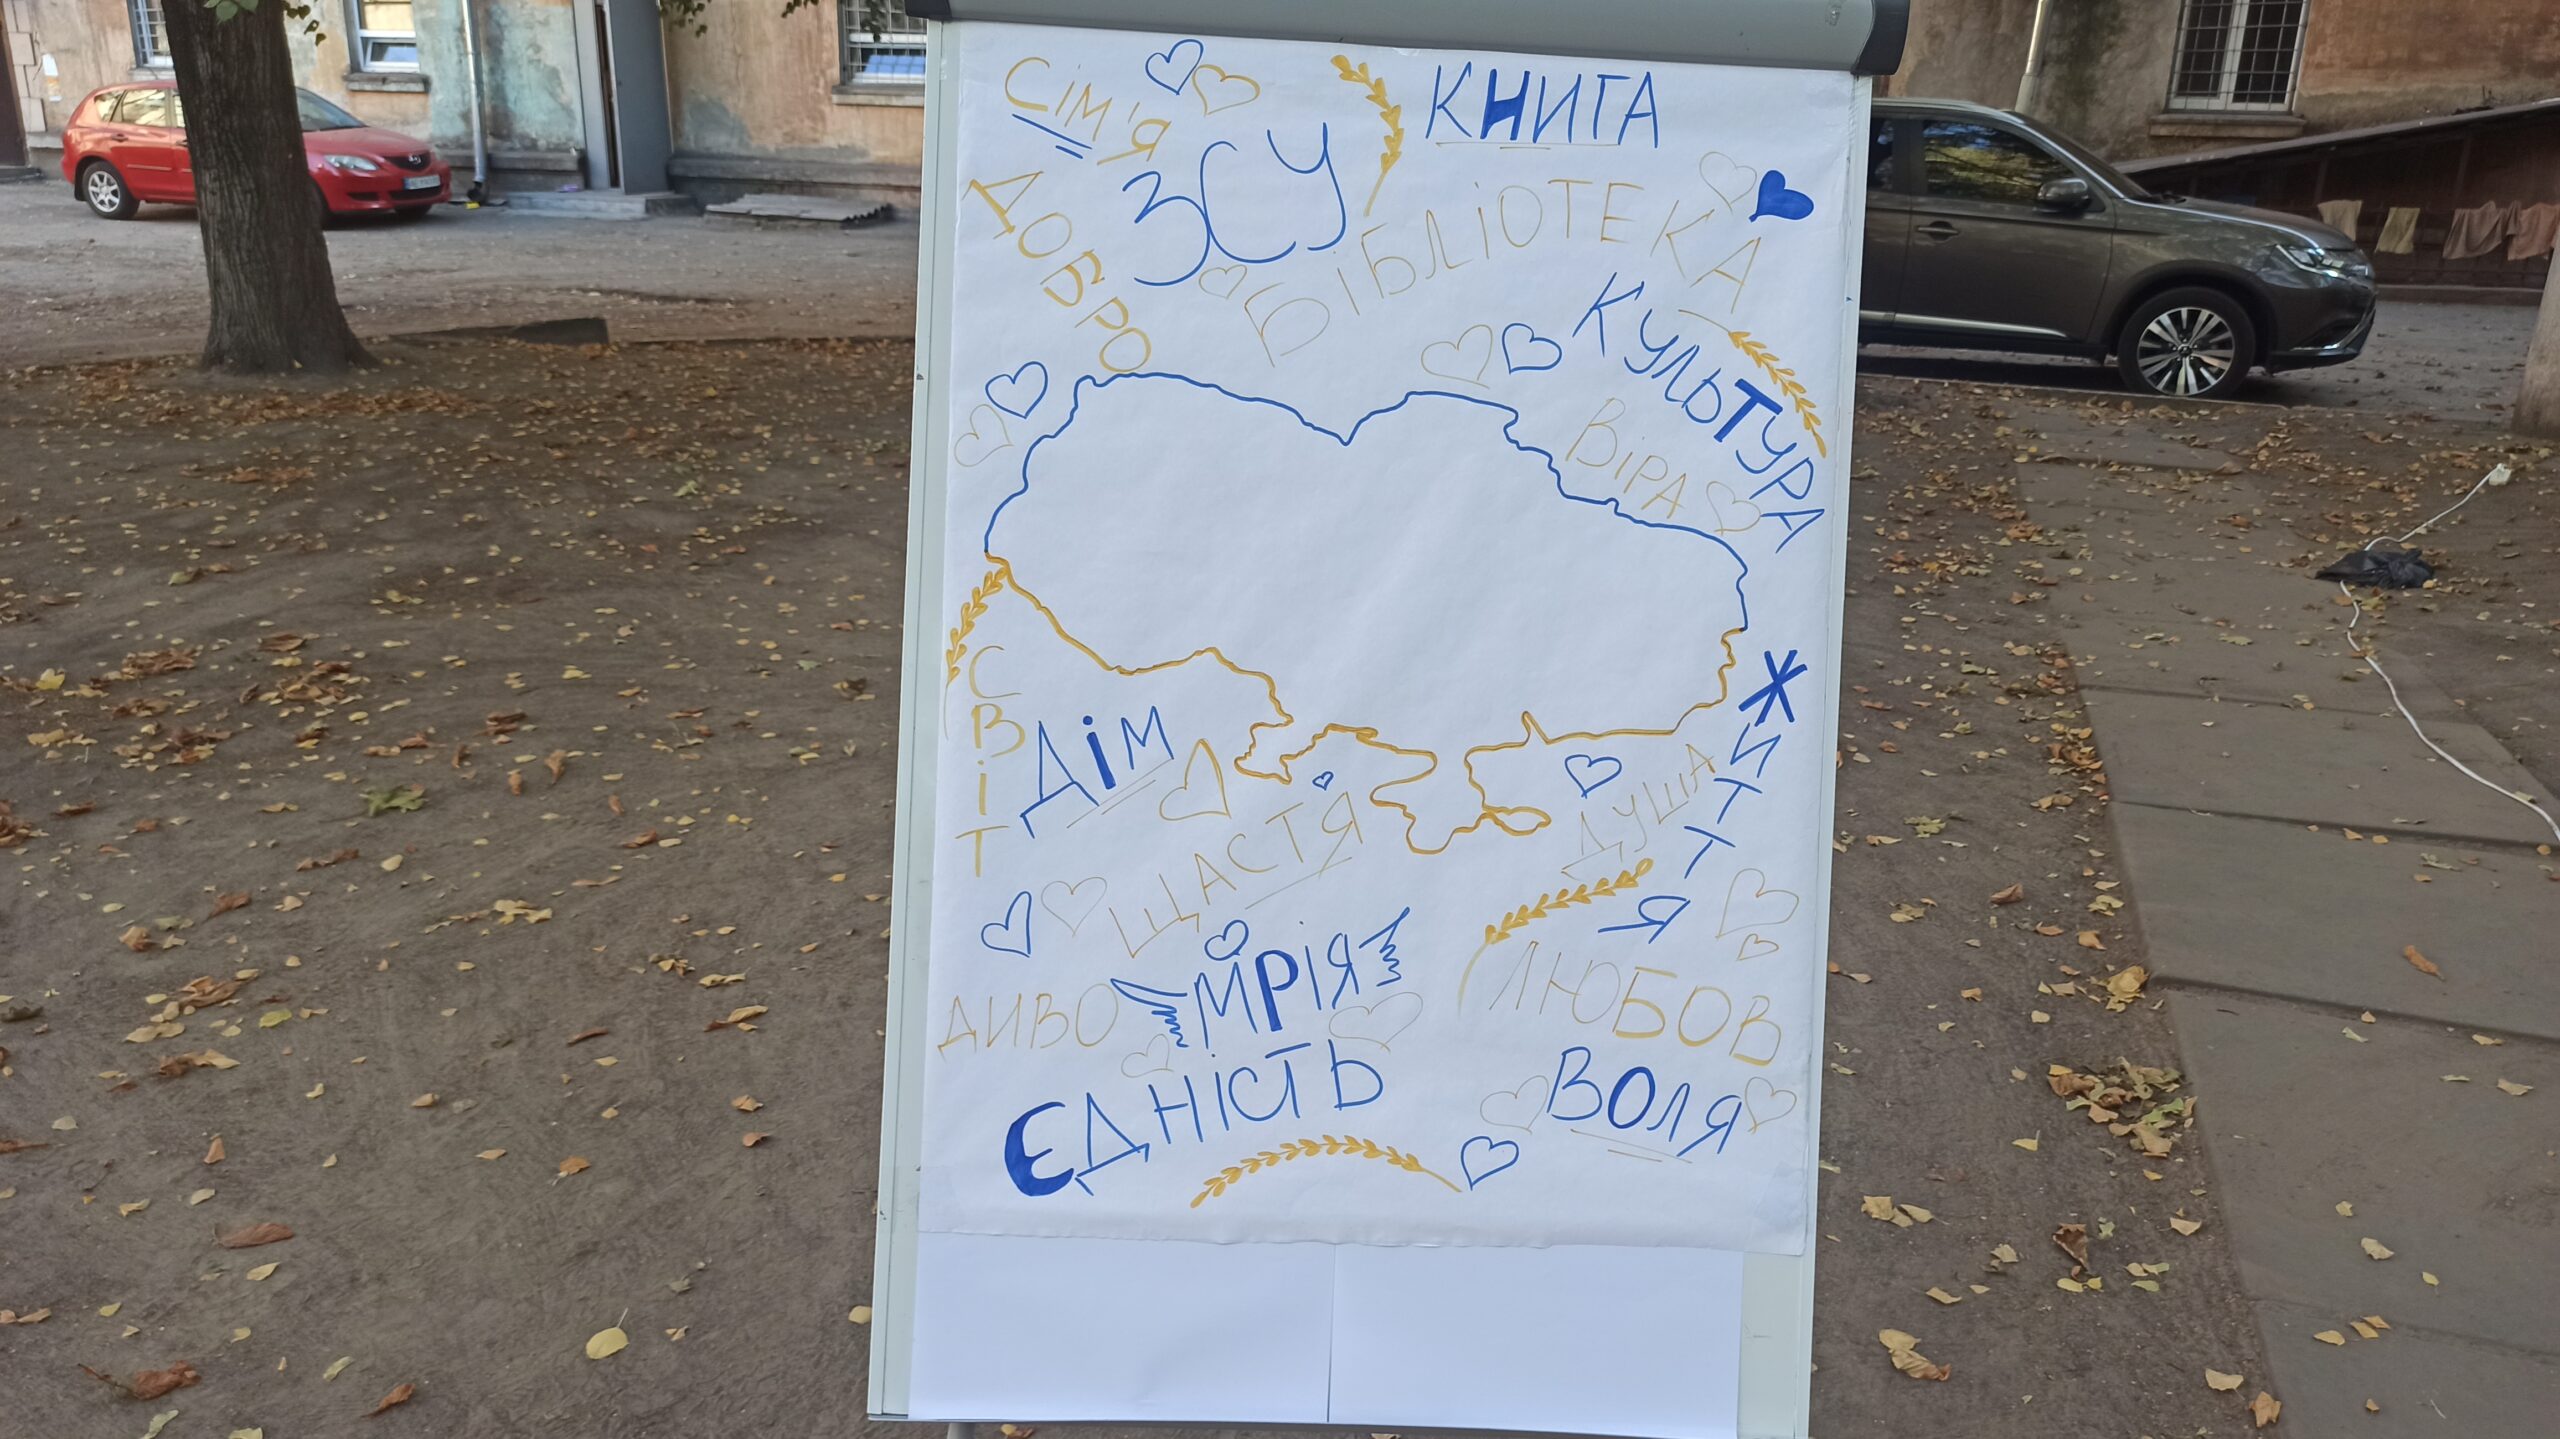 Сім'я
КНИГА
ЗСУ
ДОБРО
БІБЛІОТЕКА
КУЛЬТУРА
ВІРА
СВІТ
ДІМ
ЖИТТЯ
ДУША
ЩАСТЯ
МРІЯ
ДИВО
ЛЮБОВ
ЄДНІСТЬ
ВОЛЯ